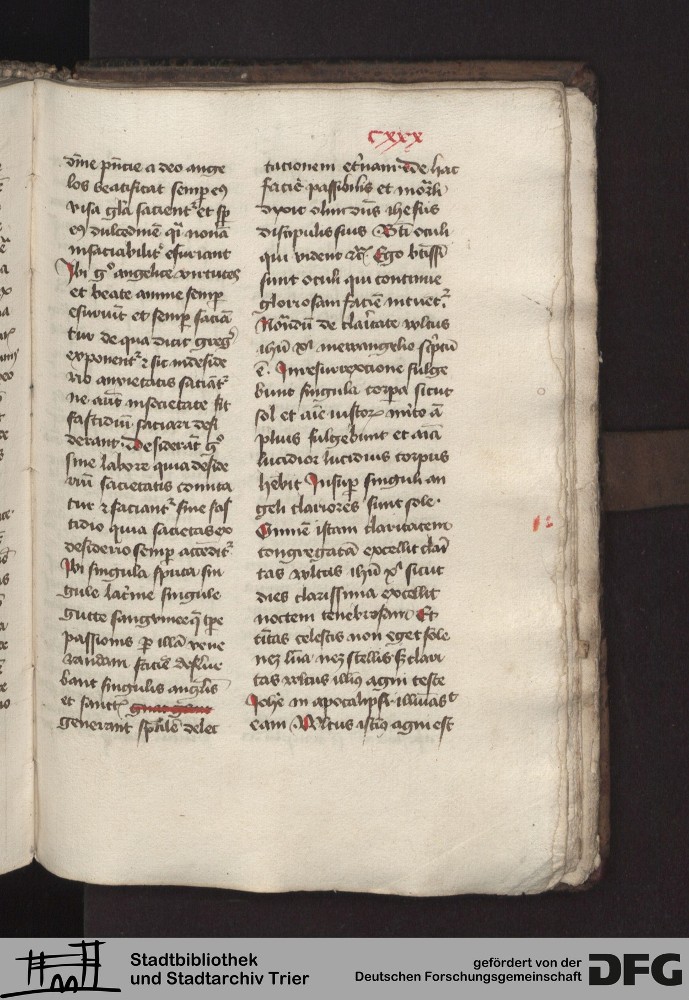 CXXX
dīne pn̄cie a deo ange
los beatificat semp eꝯ
visa gl̄a sacientᷣ et sp̄
eꝯ dulcedinē qͥ nō nā
insaciabilitᷣ esuriunt
Ibi gͦ angelice virtutes
et beate anime semp̄
esuriūt et semp̄ saciā
tur de qua dicit gregᷣ
exponentᷣ ⁊ sic in deside
rio anxietatis saciātᷣ
ne aūt in societate sit
fastidiū saciari desi
derant desiderāt gͦ
sine labore quia deside
riū sacietatis comita
tur ⁊ faciantᷣ sine fas
tidio quia sacietas ex
desiderio semp̄ acceditᷣ
Ibi singula sputa sin
gule lacͥme singule
gutte sanguinee q̄ tpe
passionis ꝑ illā vene
randam faciē deflue
bant singulis angͥlis
et sanctꝭ
generant spūalē delec
tacionem et'nam de hac
faciē passibilis et mor̄li
dixit olim dn̄s ihesus
discipulis suis Bt̄i oculi
qui vident ⁊cͣ Ego bt̄issī
sunt oculi qui continue
gloriosam faciē intuētᷣ
Nōndū de claritate vultus
ihū xͥ in ewangelio sc̄ptū
ē. In resurrexcione fulge
bunt singula corpa sicut
sol et aīe iustoꝝ in īto ā
plius fulgebunt et aīa
lucidior lucidius corpus
hēbit Insuꝑ singuli an
geli clariores sunt sole.
Omnē istam claritatem
congregatā excellit clari
tas vultus ihū xͥ sicut
dies clarissima excellit
noctem tenebrosam Et
ciuitas celestis non eget sole
neqꝫ luna neqꝫ stellis sꝫ clari
tas vultus illiꝰ agni teste
Iohē in apocalipsi illuiast
eam Vultus istiꝰ agni est
12
Stadtbibliothek
und Stadtarchiv Trier
gefördert von der
Deutschen Forschungsgemeinschaft
DFG